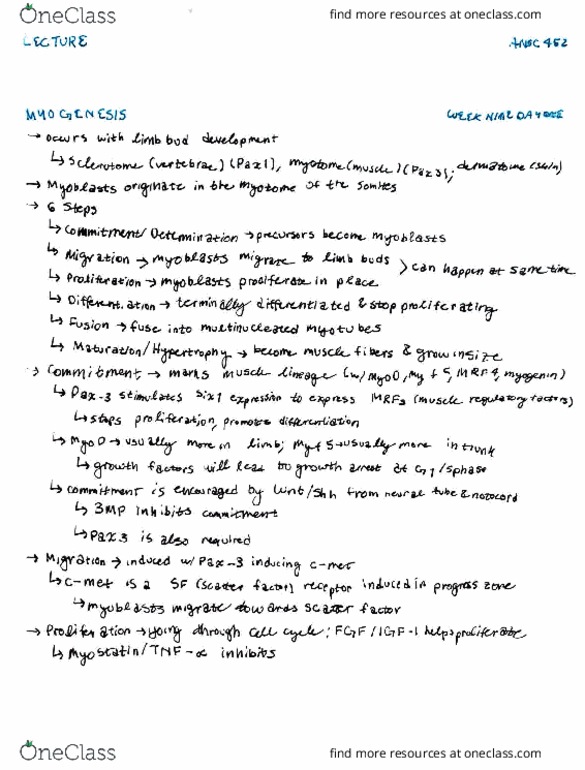 OneClass find more resources at oneclass.com
LECTURE ANSC 452
MYOGENESIS WEEK NINE DAY ONE
→ occurs with limb bud development
↳ sclerotome (vertebrae) (Pax1), myotome (muscle) (Pax3), dermatome (skin)
→ Myoblasts originate in the myotome of the somites
→ 6 Steps
↳ Commitment/Determination → precursors become myoblasts
↳ Migration → myoblasts migrate to limb buds
> can happen at same time
↳ Proliferation → myoblasts proliferate in place
↳ Differentiation → terminally differentiated & stop proliferating
↳ Fusion → fuse into multinucleated myotubes
↳ Maturation/Hypertrophy → become muscle fibers & grow in size
→ Commitment → marks muscle lineage (w/ MyoD, Myf5, MRF4, myogenin)
↳ Pax-3 stimulates Six1 expression to express MRFs (muscle regulatory factors)
↳ stops proliferation, promote differentiation
↳ MyoD → usually more in limb; Myf5 → usually more in trunk
↳ growth factors will lead to growth arrest at G1/S phase
↳ commitment is encouraged by Wnt/Shh from neural tube & notocord
↳ BMP inhibits commitment
↳ Pax3 is also required
→ Migration → induced w/ Pax-3 inducing c-met
↳ c-met is a SF (scatter factor) receptor induced in progress zone
↳ myoblasts migrate towards scatter factor
→ Proliferation → going through cell cycle; FGF/IGF-1 helps proliferate
↳ Myostatin/TNF-α inhibits
OneClass find more resources at oneclass.com